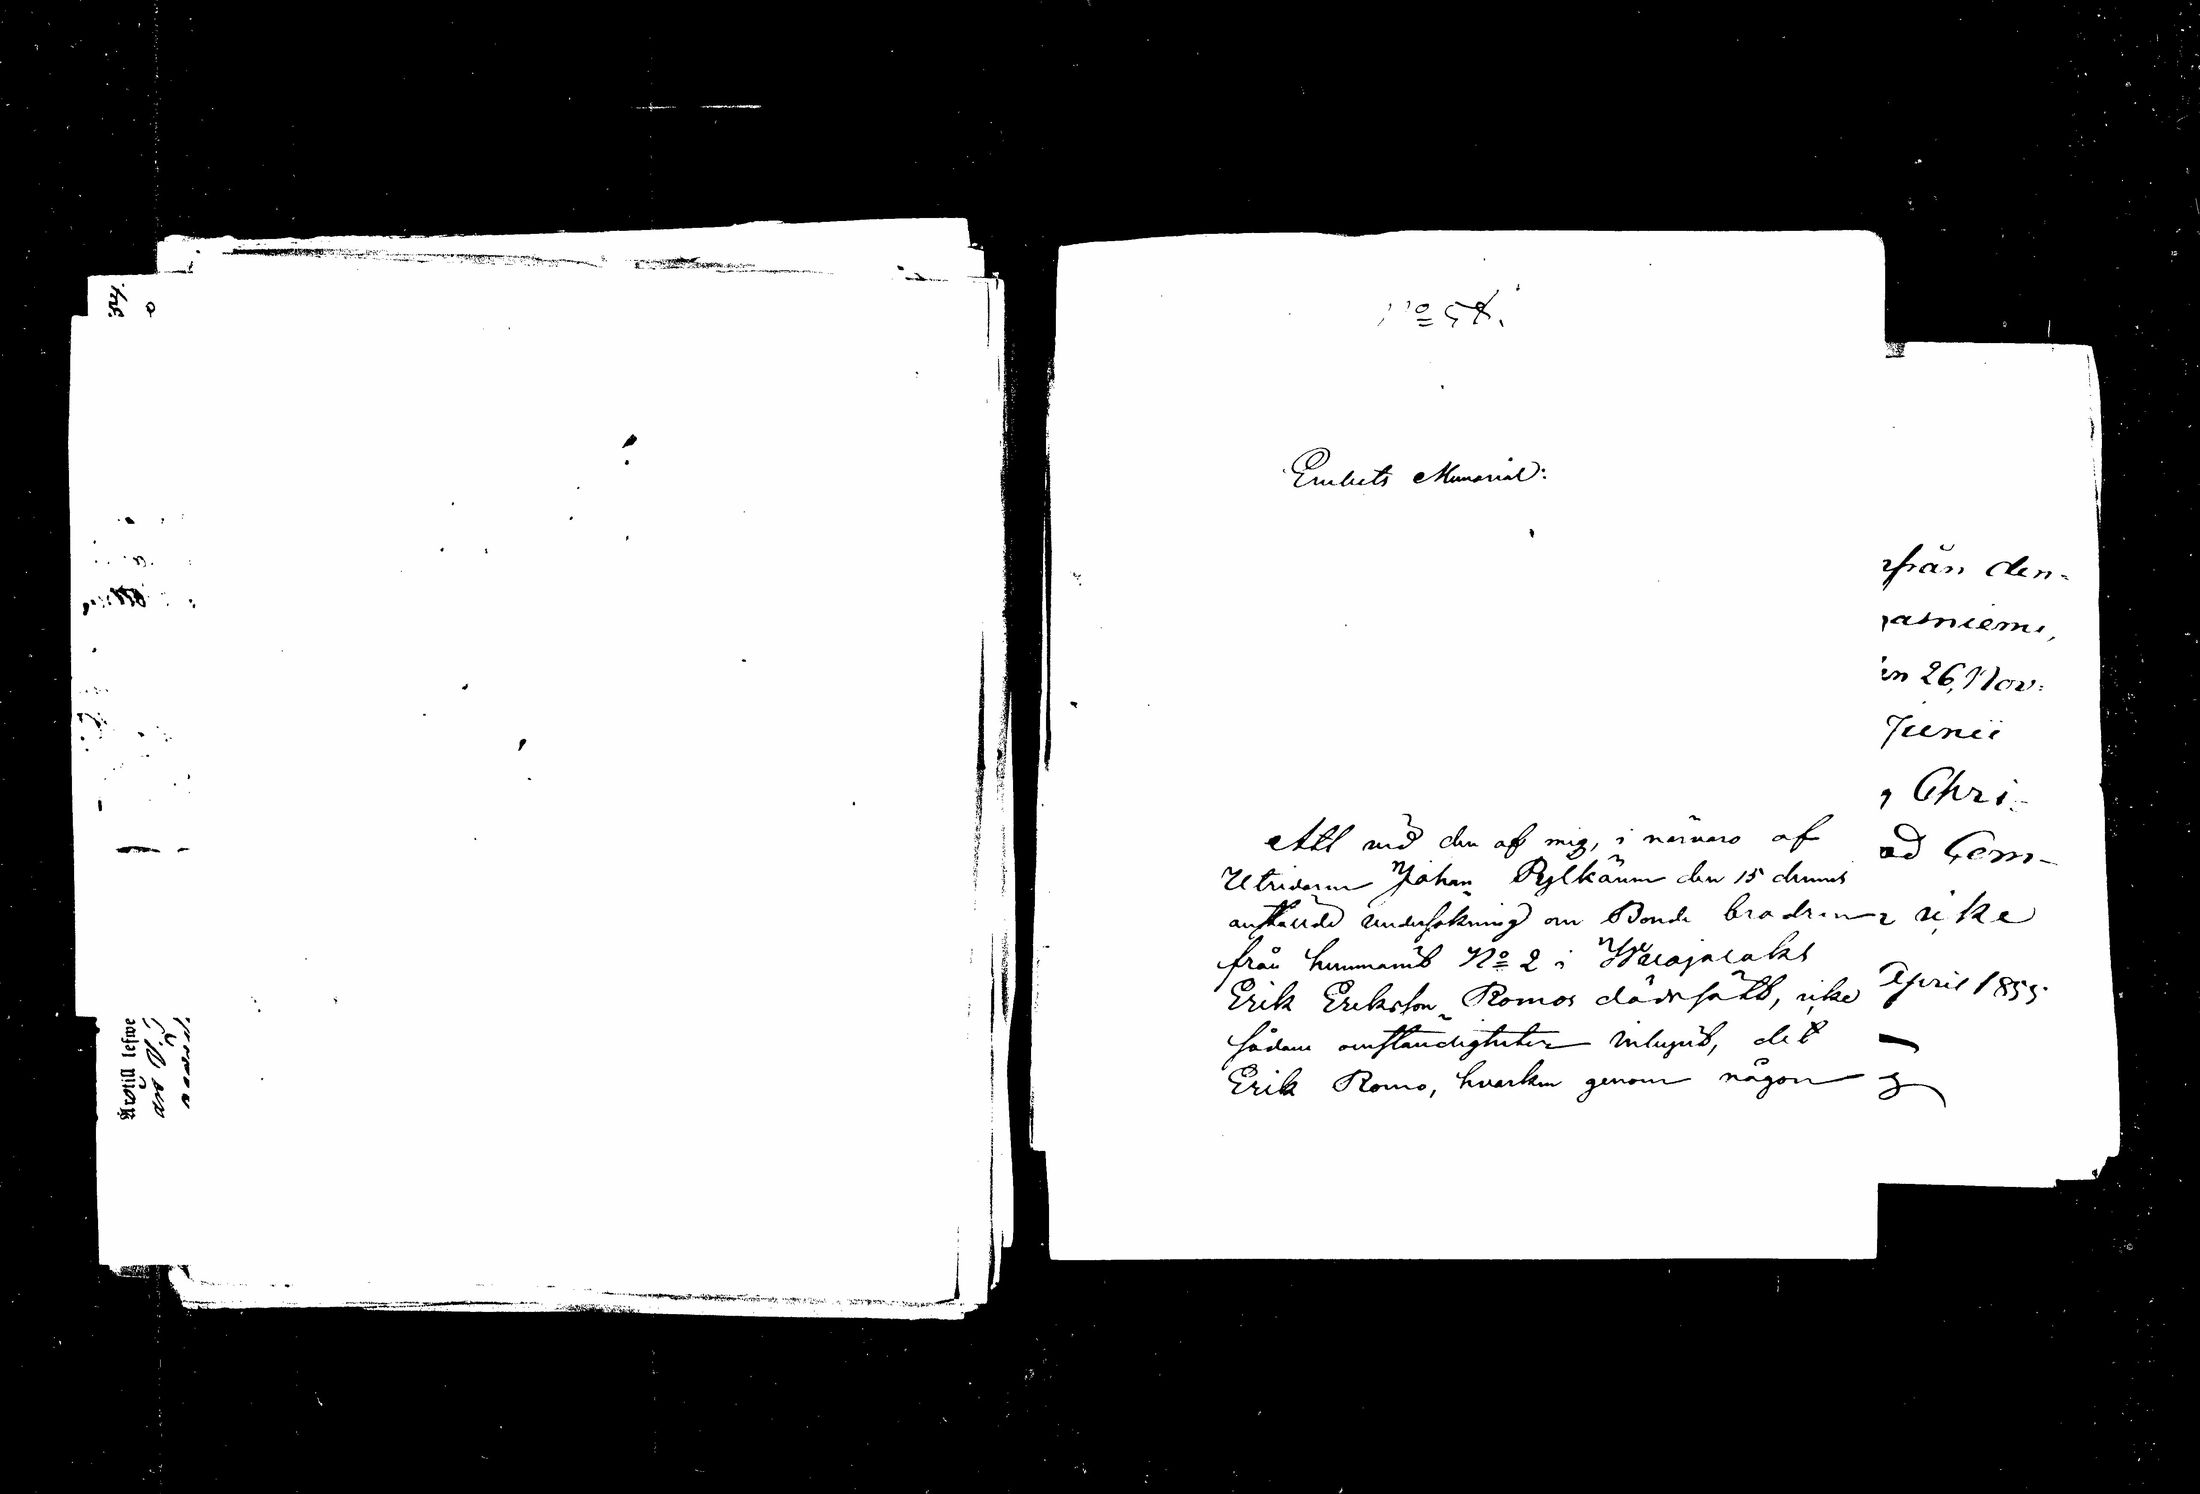 No 54.
Embets Memorial:
Att vid den af mig, i närvaro af
Utridaren Johan Pylkäinen den 15 dennes
anstälde undersökning om Bonde brodren
från hemmanet No 2 i
Erik Eriksson Romos dödssätt, icke
sådane omständigheter inlupit, det
Erik Romo, hvarken genom någon
från den-
asniemi,
en 26, Nov:
Junii
Chri-
ad Gem-
icke
April 1855
g
Krono
till lefwe